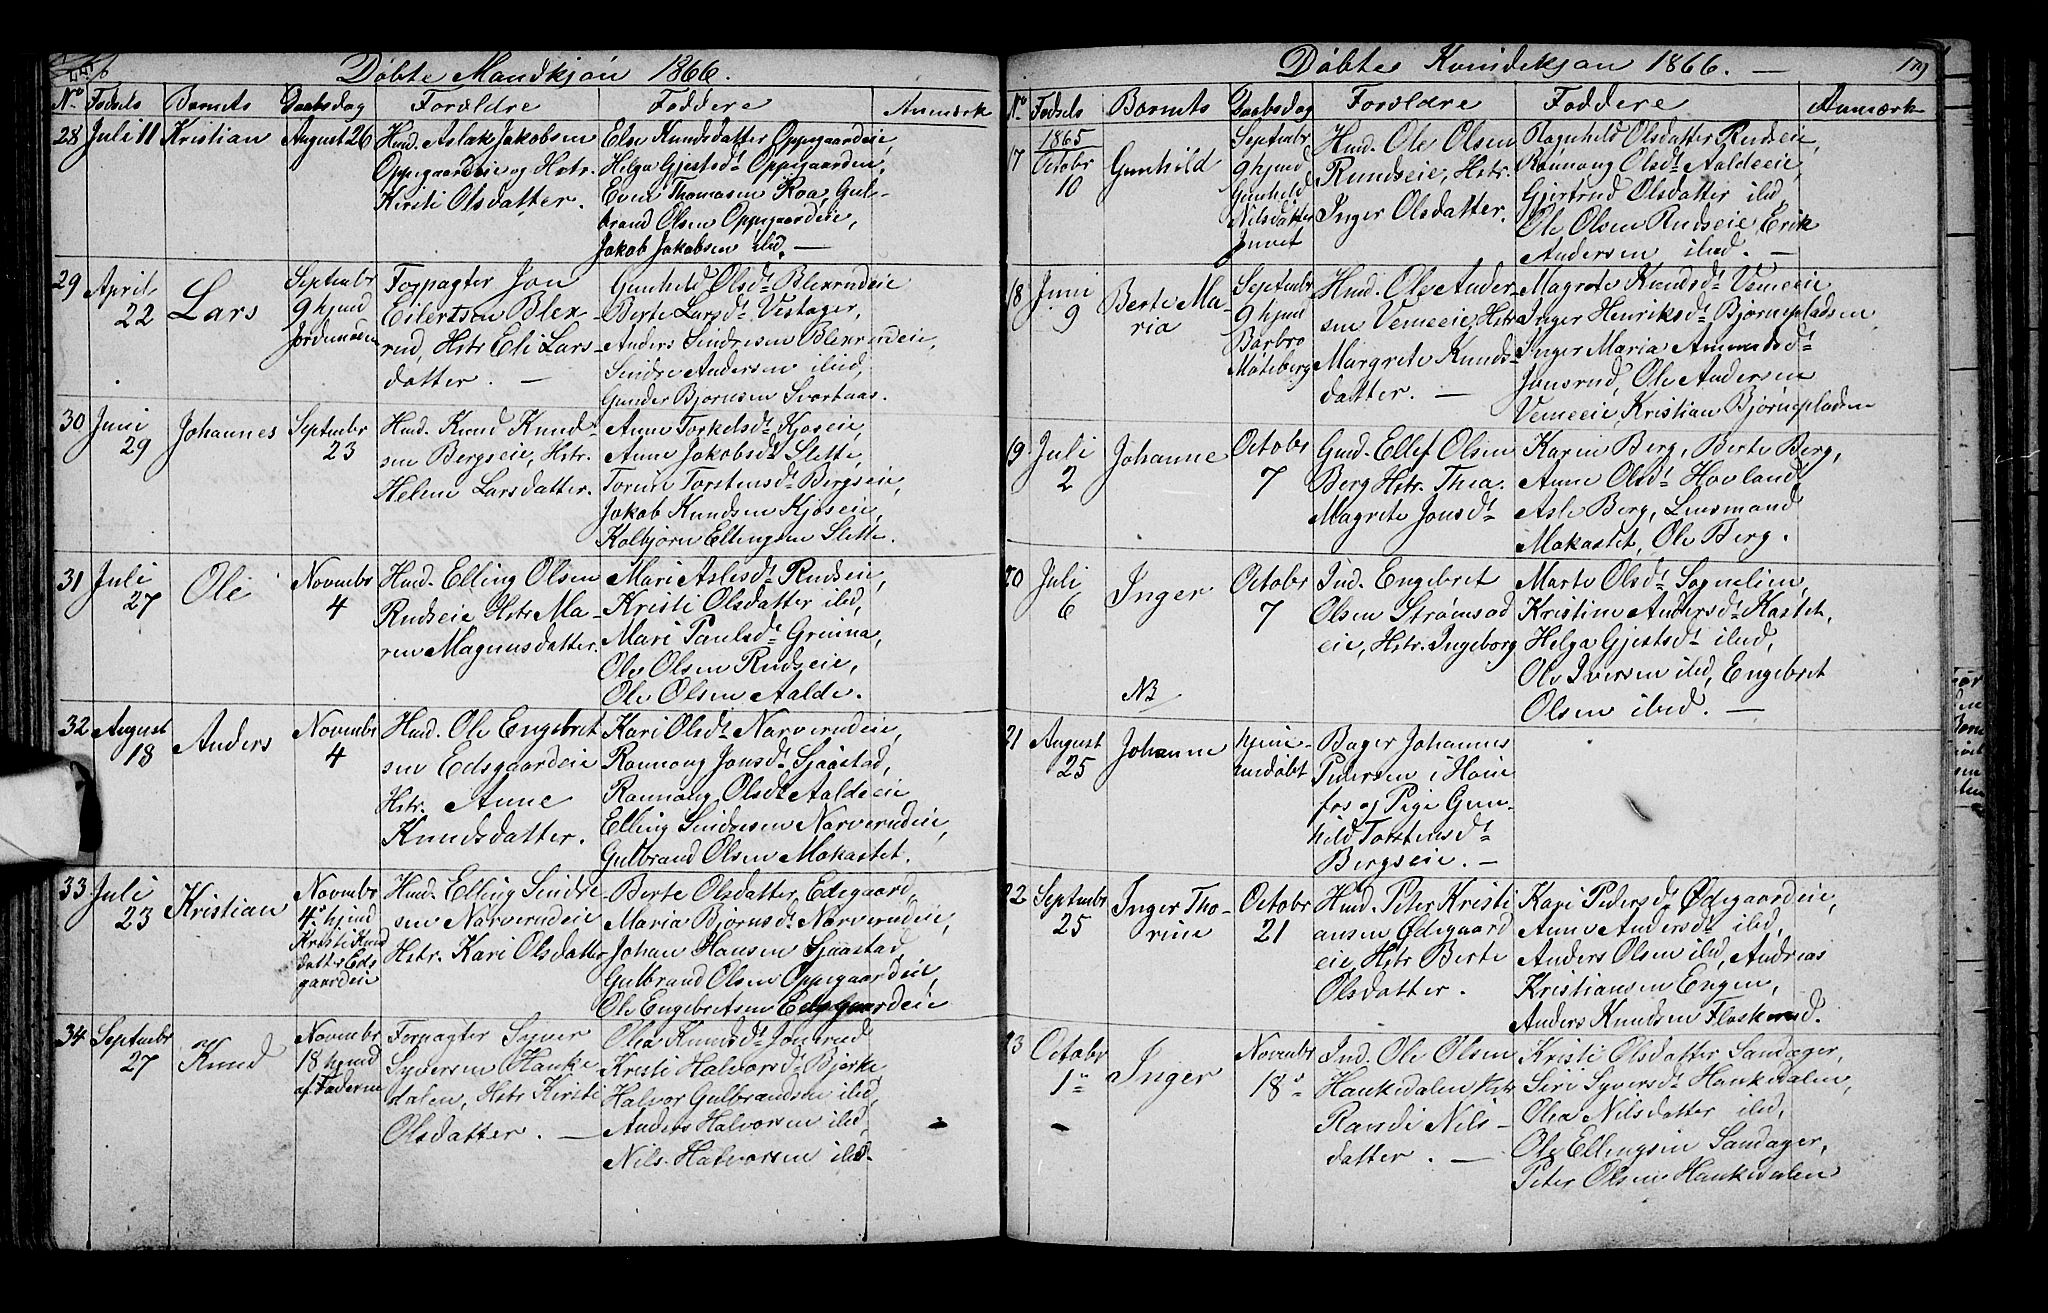 Døbte Mandkjøn 1866.
No Fødsels Barnets Daabsdag Forældre Faddere Anmærk
28 Juli 11 Kristian August 26 Hmd. Aslak Jakobsen
Oppegaardeie og Hstr.
Kirsti Olsdatter.
Else Knudsdatter Oppegaardeie,
Helga Gjestsdt Oppegaardeie,
Even Thomasen Roa, Gul-
brand Olsen Oppegaardeie,
Jakob Jakobsen ibid. —
29 April
22
Lars
Septembr
9 hjmd
Jordemoderen
Forpagter Jon
Eilertsen Blex-
rud, Hstr Eli Lars-
datter. —
Gunhild Olsdt Blexrudeie
Berte Larsdt Vestager,
Anders Sindresen Blexrudeie,
Sindre Andersen ibid,
Gunder Bjørnsen Svartaas.
30 Juni
29
Johannes
Septembr
23
Hmd. Knud Knud-
sen Bergseie, Hstr.
Helene Larsdatter.
Anne Torkelsdt Kjøseie,
Anne Jakobsdt Slette,
Torine Torstensdt Bergseie,
Jakob Knudsen Kjøseie,
Kolbjørn Ellingsen Slette.
31 Juli
27
Ole
Novembr
4
Hmd. Elling Olsen
Rudseie, Hstr Ma-
ren Magnusdatter.
Mari Aslesdt Rudseie,
Kristi Olsdatter ibid,
Mari Paulsdt Gruina,
Ole Olsen Rudseie,
Ole Olsen Aalde.
32 August
18
Anders
Novembr
4
Hmd. Ole Engebret
sen Edsgaardeie
Hstr. Anne
Knudsdatter.
Kari Olsdt Narverudeie,
Rannang Jonsdt Sjaastad,
Rannang Olsdt Aaldeeie
Elling Sindresen Narverudeie,
Gulbrand Olsen Mokastet.
33 Juli
23
Kristian
Novembr
4 hjmd
Kristi Knud
datter Eds
gaardeie
Hmd. Elling Sindre
sen Narverudeie
Hstr. Kari Olsdatter
Berte Olsdatter Edegaard,
Maria Bjørnsdt Narverudeie,
Johan Hansen Sjaastad,
Gulbrand Olsen Oppegaardeie,
Ole Engebretsen Edsgaardeie
34 Septembr
27
Knud
Novembr
18 hjmd
af Faderen
Forpagter Syver
Syversen Hanke-
dalen, Hstr Kirsti
Olsdatter. —
Olea Knudsdt Jonsrud
Kristi Halvorsdt Bjerke
Halvor Gulbrandsen ibid,
Anders Halvorsen ibid,
Nils Halvorsen ibid.
Døbte Kvindekjøn 1866. —
179
No Fødsels Barnets Daabsdag Forældre Faddere Anmærk
17 1865
Octobr
10
Gunhild
Septembr
9 hjmd
Gunhild
Nilsdatter
Juvet
Hmd. Ole Olsen
Rundseie, Hstr.
Inger Olsdatter.
Ragnhild Olsdatter Rudseie,
Rannang Olsdt Aaldeeie,
Gjertrud Olsdatter ibid,
Ole Olsen Rudseie, Erik
Andersen ibid. —
18 Juni
9
Berte Ma-
ria
Septembr
9 hjmd
Barbro
Moteberg
Hmd. Ole Ander-
sen Vemeeie, Hstr
Margrete Knuds-
datter. —
Magrete Knudsdt Vemeeie,
Inger Henriksdt Bjørnepladsen
Inger Maria Amundsdt
Jonsrud, Ole Andersen
Vemeeie, Kristian Bjørnepladsen
19 Juli
2
Johanne
Octobr
7
Gmd. Ellef Olsen
Berg Hstr. Thea
Magrete Jonsdt
Karin Berg, Berte Berg,
Anne Olsdt Hovland
Asle Berg, Lensmand
Mokastet, Ole Berg.
20 Juli
6
Inger
NB
Octobr
7
Ind. Engebret
Olsen Strømsod
eie, Hstr. Ingeborg
Marte Olsdt Sognelien,
Kristine Andersdt Kastet,
Helga Gjestsdt ibid,
Ole Iversen ibid, Engebret
Olsen ibid. —
21 August
25
Johanne
hjem-
medøbt
Bager Johannes
Pedersen i Høne
fos og Pige Gun-
hild Torstensdt
Bergseie. —
22 Septembr
25
Inger Tho-
rine
Octobr
21
Hmd. Peter Kristi
ansen Ødegaard
eie, Hstr Berte
Olsdatter.
Kari Pedersdt Ødegaardeie,
Anne Andersdt ibid,
Anders Olsen ibid, Andreas
Kristiansen Engen,
Anders Knudsen Flaskerud.
23 Octobr
1
Inger
Novembr
18
Ind. Ole Olsen
Hankedalen Hstr
Randi Nils-
datter. —
Kristi Olsdatter Sandager,
Siri Syversdt Hankedalen,
Olea Nilsdatter ibid,
Ole Ellingsen Sandager,
Peter Olsen Hankedalen